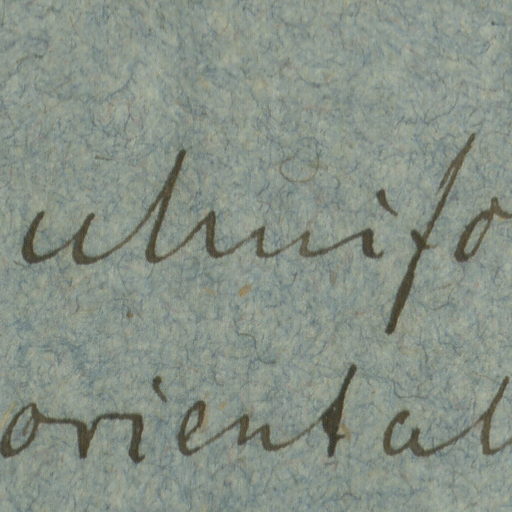 ulmifo
oriental